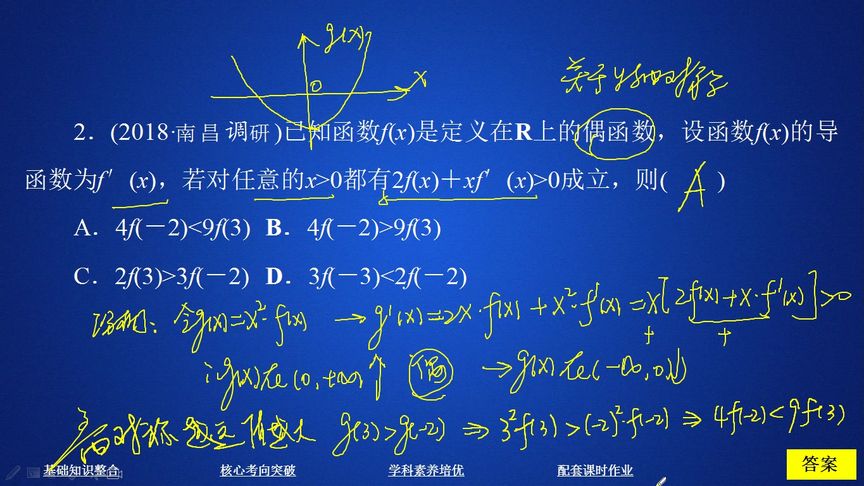 g(x)
x
0
关于y轴对称
2．(2018·南昌调研)已知函数f(x)是定义在R上的偶函数，设函数f(x)的导
函数为f′(x)，若对任意的x>0都有2f(x)＋xf′(x)>0成立，则( A )
A．4f(－2)<9f(3) B．4f(－2)>9f(3)
C．2f(3)>3f(－2) D．3f(－3)<2f(－2)
令g(x)=x²·f(x) → g′(x)=2x·f(x)+x²·f′(x)=x[2f(x)+x·f′(x)]>0
+ +
∴g(x)在(0,+∞)↑ 偶 → g(x)在(-∞,0)↓
离对称 越 g(3)>g(-2) ⇒ 3²·f(3)>(-2)²·f(-2) ⇒ 4f(-2)<9f(3)
基础知识整合 核心考向突破 学科素养培优 配套课时作业 答案